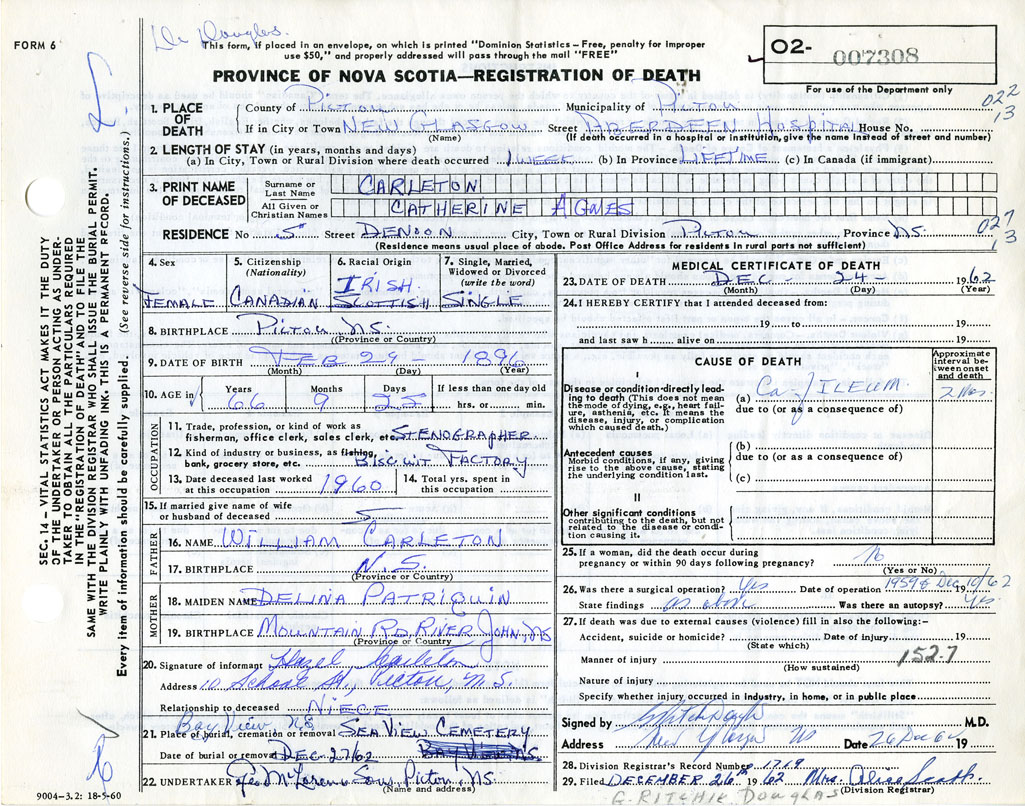 FORM 6
Dr Douglas.
This form, if placed in an envelope, on which is printed "Dominion Statistics – Free, penalty for improper
use $50," and properly addressed will pass through the mail "FREE"
PROVINCE OF NOVA SCOTIA—REGISTRATION OF DEATH
02- 007308
For use of the Department only
022
13
1. PLACE OF DEATH
County of PICTOU Municipality of PICTOU
If in City or Town NEW GLASGOW Street ABERDEEN HOSPITAL House No.
(Name) (If death occurred in a hospital or institution, give the name instead of street and number)
2. LENGTH OF STAY (in years, months and days)
(a) In City, Town or Rural Division where death occurred 1 WEEK (b) In Province LIFETIME (c) In Canada (if immigrant)
3. PRINT NAME OF DECEASED
Surname or Last Name CARLETON
All Given or Christian Names CATHERINE AGNES
027
13
RESIDENCE No 5 Street DENOON City, Town or Rural Division PICTOU Province NS.
(Residence means usual place of abode. Post Office Address for residents in rural parts not sufficient)
4. Sex FEMALE
5. Citizenship (Nationality) CANADIAN
6. Racial Origin IRISH SCOTTISH
7. Single, Married, Widowed or Divorced (write the word) SINGLE
8. BIRTHPLACE PICTOU NS.
(Province or Country)
9. DATE OF BIRTH FEB 29 - 1896
(Month) (Day) (Year)
10. AGE in Years 66 Months 9 Days 25 If less than one day old hrs. or min.
OCCUPATION
11. Trade, profession, or kind of work as fisherman, office clerk, sales clerk, etc. STENOGRAPHER
12. Kind of industry or business, as fishing, bank, grocery store, etc. BISCUIT FACTORY
13. Date deceased last worked at this occupation 1960
14. Total yrs. spent in this occupation
15. If married give name of wife or husband of deceased
FATHER
16. NAME WILLIAM CARLETON
17. BIRTHPLACE N.S.
(Province or Country)
MOTHER
18. MAIDEN NAME DELINA PATRIQUIN
19. BIRTHPLACE MOUNTAIN RD. RIVER JOHN, NS
(Province or Country)
20. Signature of informant Hazel Carleton
Address 10 School St., Pictou, N.S.
Relationship to deceased NIECE
Bay View, NS
21. Place of burial, cremation or removal SEA VIEW CEMETERY
Date of burial or removal DEC 27/62
22. UNDERTAKER Geo McLaren Sons, Pictou, NS.
(Name and address)
9004–3.2: 18-5-60
MEDICAL CERTIFICATE OF DEATH
23. DATE OF DEATH DEC - 24 - 1962
(Month) (Day) (Year)
24. I HEREBY CERTIFY that I attended deceased from:
19 to 19
and last saw h alive on 19
CAUSE OF DEATH
Approximate interval between onset and death
I
Disease or condition directly leading to death (This does not mean the mode of dying, e.g., heart failure, asthenia, etc. It means the disease, injury, or complication which caused death.)
(a) Ca of ILEUM.
due to (or as a consequence of)
Antecedent causes
Morbid conditions, if any, giving rise to the above cause, stating the underlying condition last.
(b)
due to (or as a consequence of)
(c)
II
Other significant conditions contributing to the death, but not related to the disease or condition causing it.
25. If a woman, did the death occur during pregnancy or within 90 days following pregnancy? No
(Yes or No)
26. Was there a surgical operation? Yes Date of operation 1959 & Dec 10/62
State findings as above Was there an autopsy? Yes.
27. If death was due to external causes (violence) fill in also the following:–
Accident, suicide or homicide? Date of injury 19
(State which)
Manner of injury 152.7
(How sustained)
Nature of injury
Specify whether injury occurred in industry, in home, or in public place
Signed by M.D.
Address New Glasgow NS Date 26 Dec 62 19
28. Division Registrar's Record Number 1719
29. Filed DECEMBER 26th 1962 Mrs. Alice Scott
(Division Registrar)
G. RITCHIE Douglas
SEC. 14 – VITAL STATISTICS ACT MAKES IT THE DUTY
OF THE UNDERTAKER OR PERSON ACTING AS UNDER-
TAKER TO OBTAIN ALL THE PARTICULARS REQUIRED
IN THE "REGISTRATION OF DEATH" AND TO FILE THE
SAME WITH THE DIVISION REGISTRAR WHO SHALL ISSUE THE BURIAL PERMIT.
WRITE PLAINLY WITH UNFADING INK. THIS IS A PERMANENT RECORD.
Every item of information should be carefully supplied. (See reverse side for instructions.)